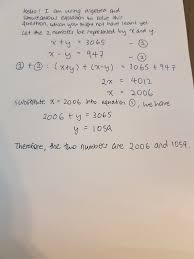 Hello! I am using algebra and
simultaneous equation to solve this
question, which you might not have learnt yet.
Let the 2 numbers be represented by x and y.
x + y = 3065 - ①
x - y = 947 - ②
① + ② : (x+y) + (x-y) = 3065 + 947
2x = 4012
x = 2006
Substitute x = 2006 into equation ①, we have
2006 + y = 3065
y = 1059
Therefore, the two numbers are 2006 and 1059.